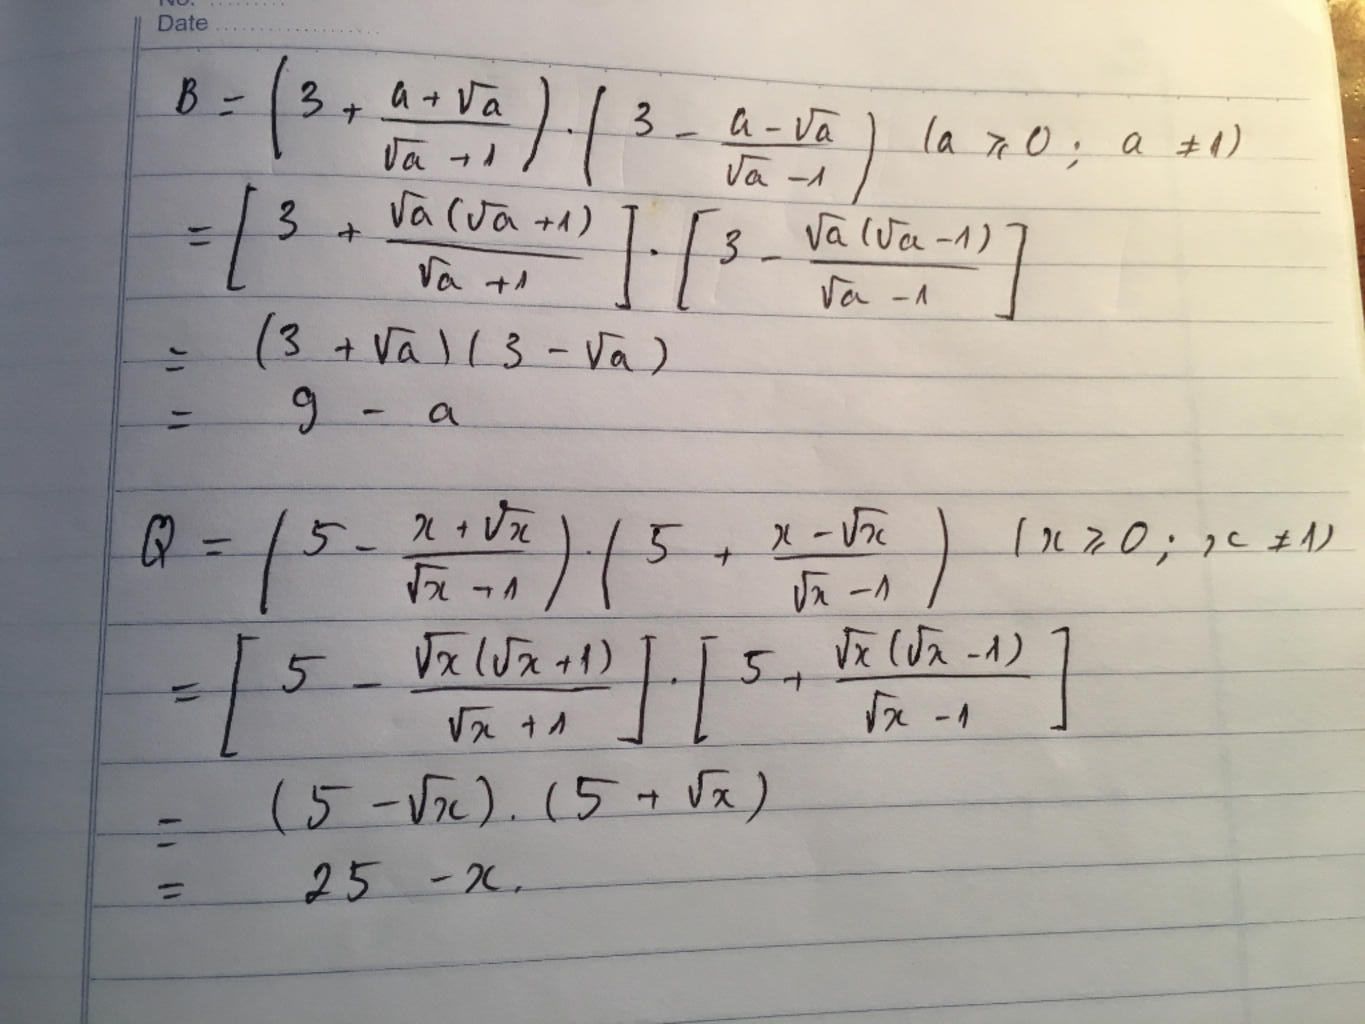 No. .........
Date ....................
B = (3 + \frac{a + √a}{√a + 1}) . (3 - \frac{a - √a}{√a - 1}) (a ≥ 0 ; a ≠ 1)
= [3 + \frac{√a(√a + 1)}{√a + 1}] . [3 - \frac{√a(√a - 1)}{√a - 1}]
= (3 + √a)(3 - √a)
= 9 - a
Q = (5 - \frac{x + √x}{√x + 1}) . (5 + \frac{x - √x}{√x - 1}) (x ≥ 0 ; x ≠ 1)
= [5 - \frac{√x(√x + 1)}{√x + 1}] . [5 + \frac{√x(√x - 1)}{√x - 1}]
= (5 - √x) . (5 + √x)
= 25 - x.